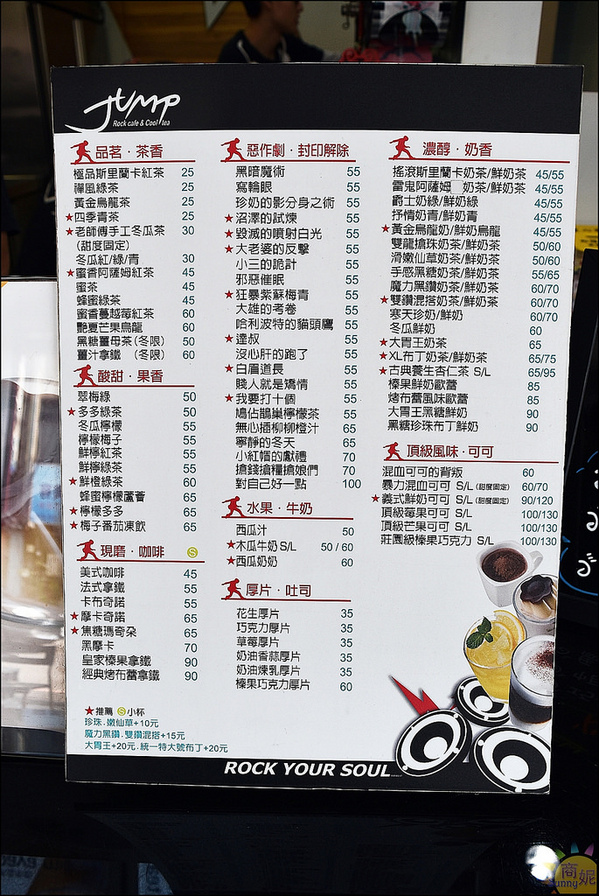 JUMP
Rock cafe & Cool tea
品茗·茶香
極品斯里蘭卡紅茶 25
禪風綠茶 25
黃金烏龍茶 25
★四季青茶 25
★老師傅手工冬瓜茶 30
(甜度固定)
冬瓜紅/綠/青 30
★蜜香阿薩姆紅茶 45
蜜茶 45
蜂蜜綠茶 45
蜜香蔓越莓紅茶 60
艷夏芒果烏龍 60
黑糖薑母茶(冬限) 50
薑汁拿鐵 (冬限) 60
酸甜·果香
翠梅綠 50
★多多綠茶 50
冬瓜檸檬 55
檸檬梅子 55
鮮檸紅茶 55
鮮檸綠茶 55
★鮮橙綠茶 60
蜂蜜檸檬蘆薈 65
★檸檬多多 65
★梅子番茄凍飲 65
現磨·咖啡 S
美式咖啡 45
法式拿鐵 55
卡布奇諾 55
★摩卡奇諾 65
★焦糖瑪奇朵 65
黑摩卡 70
皇家榛果拿鐵 90
經典烤布蕾拿鐵 90
★推薦 S小杯
珍珠.嫩仙草+10元
魔力黑鑽.雙鑽混搭+15元
大胃王+20元.統一特大號布丁+20元
惡作劇·封印解除
黑暗魔術 55
寫輪眼 55
珍奶的影分身之術 55
★沼澤的試煉 55
★毀滅的噴射白光 55
★大老婆的反擊 55
小三的詭計 55
邪惡催眠 55
★狂暴紫蘇梅青 55
大雄的考卷 55
哈利波特的貓頭鷹 55
★達叔 55
沒心肝的跑了 55
★白眉道長 55
賤人就是矯情 55
★我要打十個 55
鳩佔鵲巢檸檬茶 55
無心插柳柳橙汁 65
寧靜的冬天 65
小紅帽的獻禮 70
搶錢搶糧搶娘們 70
對自己好一點 100
水果·牛奶
西瓜汁 50
★木瓜牛奶S/L 50 / 60
★西瓜奶奶 60
厚片·吐司
花生厚片 35
巧克力厚片 35
草莓厚片 35
奶油香蒜厚片 35
奶油煉乳厚片 35
榛果巧克力厚片 60
濃醇·奶香
搖滾斯里蘭卡奶茶/鮮奶茶 45/55
雷鬼阿薩姆 奶茶/鮮奶茶 45/55
爵士奶綠/鮮奶綠 45/55
抒情奶青/鮮奶青 45/55
★黃金烏龍奶/鮮奶烏龍 45/55
雙龍搶珠奶茶/鮮奶茶 50/60
滑嫩仙草奶茶/鮮奶茶 50/60
手感黑糖奶茶/鮮奶茶 55/65
魔力黑鑽奶茶/鮮奶茶 60/70
★雙鑽混搭奶茶/鮮奶茶 60/70
寒天珍奶/鮮奶 60/70
冬瓜鮮奶 60
★大胃王奶茶 65
★XL布丁奶茶/鮮奶茶 65/75
★古典養生杏仁茶 S/L 65/95
榛果鮮奶歐蕾 85
烤布蕾風味歐蕾 85
大胃王黑糖鮮奶 90
黑糖珍珠布丁鮮奶 90
頂級風味·可可
混血可可的背叛 60
暴力混血可可 S/L (甜度固定) 60/70
★義式鮮奶可可 S/L (甜度固定) 90/120
頂級莓果可可 S/L 100/130
頂級芒果可可 S/L 100/130
莊園級榛果巧克力 S/L 100/130
ROCK YOUR SOUL
商妮